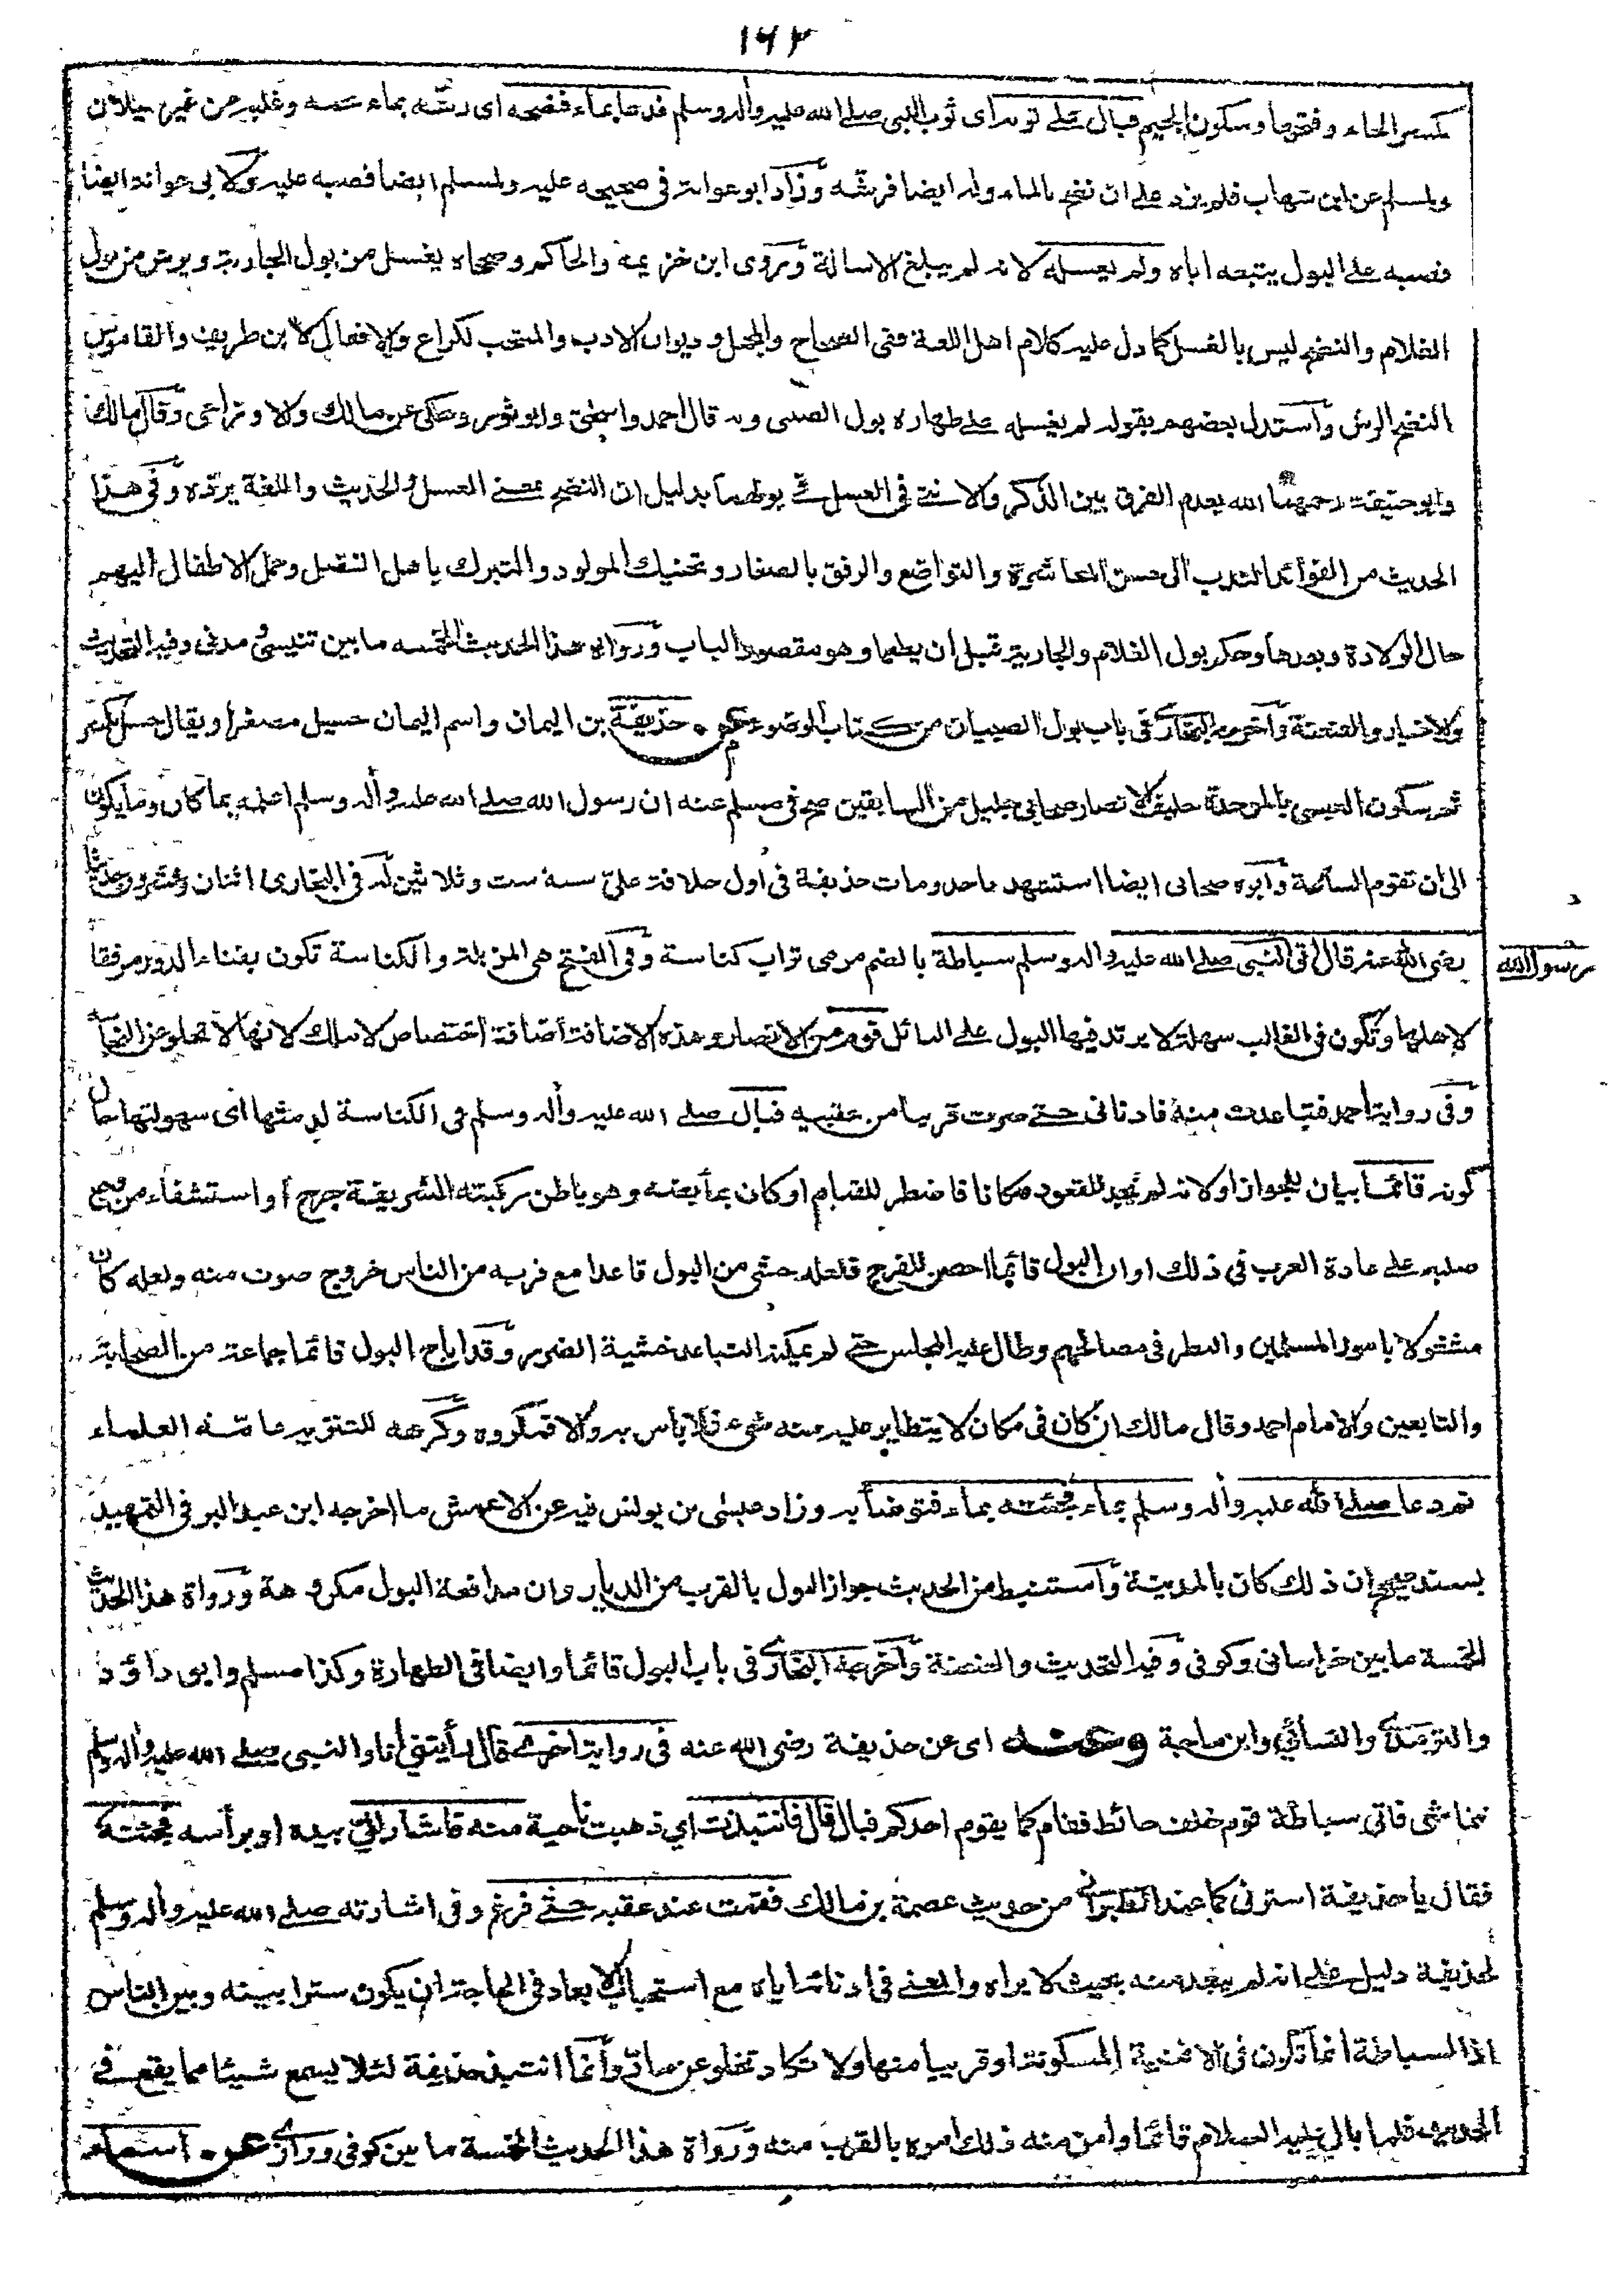 ١٦٢
بكسر الحاء وفتحها وسكون الجيم فبال على ثوبه اى ثوب النبى صلے الله عليه وأله وسلم فدعا بماء فنضحه اى رشّه بماء عمه وغلبه من غير سيلان
ولمسلم عن ابن شهاب فلم يزد على ان نضح بالماء وله ايضا فرشّه وزاد ابو عوانة فى صحيحه عليه ولمسلم ايضا فصبه عليه ولابى عوانه ايضا
فصبه على البول يتبعه اياه ولم يغسله لانه لم يبلغ الاسالة وروى ابن خزيمة والحاكم وصححاه يغسل من بول الجارية ويرش من بول
الغلام والنضح ليس بالغسل كما دل عليه كلام اهل اللغة ففى الصحاح والمجمل و ديوان الادب والمنتخب لكراع والافعال لابن طريف والقاموس
النضح الرش واستدل بعضهم بقوله لم يغسله على طهارة بول الصبى وبه قال احمد واسحق وابو ثور وحكى عن مالك والاوزاعى وقال مالك
وابو حنيفة رحمهما الله بعدم الفرق بين الذكر والانثى فى الغسل من بولهما بدليل ان النضح بمعنى الغسل والحديث واللغة يردّه وفى هذا
الحديث من الفوائد الندب الى حسن المعاشرة والتواضع والرفق بالصغار وتحنيك المولود والتبرك باهل الفضل وحمل الاطفال اليهم
حال الولادة وبعدها وحكم بول الغلام والجارية قبل ان يطعما وهو مقصود الباب ورواة هذا الحديث الخمسه ما بين تنيسىّ ومدنى وفيه التحديث
والاخبار والعنعنة واخرجه البخارى فى باب بول الصبيان من كتاب الوضوء عن حذيفة بن اليمان واسم اليمان حسيل مصغرا ويقال حسل بكسر
ثم سكون العبسى بالموحدة حليف الانصار صحابى جليل من السابقين صح فى مسلم عنه ان رسول الله صلے الله عليه وأله وسلم اعلمه بما كان وما يكون
الى ان تقوم الساعة وابوه صحابى ايضا استشهد باحد ومات حذيفة فى اول خلافة علىّ سنة ست وثلاثين له فى البخارى اثنان وعشرون حديثا
رضى الله عنه قال اتى النبى صلے الله عليه وأله وسلم سباطة بالضم مرمى تراب كناسة وفى الفتح هى المزبلة والكناسة تكون بفناء الدور مرفقا
رسول الله
لاهلها وتكون فى الغالب سهلة لا يرتد فيها البول على البائل قوم من الانصار وهذه الاضافة اضافة اختصاص لا ملك لانها لا تخلو عن النجاسة
وفى رواية احمد فتباعدت منه فادنانى حتے صرت قريبا من عقبيه فبال صلے الله عليه وأله وسلم فى الكناسة لدمثها اى سهولتها حال
كونه قائما بيان للجواز او لانه لم يجد للقعود مكانا فاضطر للقيام او كان بمأبضه وهو باطن ركبته الشريفة جرح أو استشفاء من وجع
صلبه على عادة العرب فى ذلك او ان البول قائما احصن للفرج فلعله خشى من البول قاعدا مع قربه من الناس خروج صوت منه ولعله كان
مشغولا بامور المسلمين والنظر فى مصالحهم وطال عليه المجلس حتے لم يمكنه التباعد خشية الضرر وقد اباح البول قائما جماعة من الصحابة
والتابعين والامام احمد وقال مالك ان كان فى مكان لا يتطاير عليه منه شىء فلا باس به والا فمكروه وكرهه للتنزيه عامّة العلماء
ثم دعا صلے الله عليه وأله وسلم بماء فجئته بماء فتوضأ به وزاد عيسى بن يونس فيه عن الاعمش ما اخرجه ابن عبد البر فى التمهيد
بسند صحيح ان ذلك كان بالمدينة واستنبط من الحديث جواز البول بالقرب من الديار وان مدافعة البول مكروهة ورواة هذا الحديث
الخمسة ما بين خراسانى وكوفى وفيه التحديث والعنعنة واخرجه البخارى فى باب البول قائما وايضا فى الطهارة وكذا مسلم وابو داؤد
والترمذى والنسائى وابن ماجة وعنه اى عن حذيفة رضى الله عنه فى رواية اخرى قال رأيتنى أنا والنبى صلے الله عليه وأله وسلم
نتماشى فاتى سباطة قوم خلف حائط فقام كما يقوم احدكم فبال قال فانتبذت اي ذهبت ناحية منه فاشار الىّ بيده او براسه فجئته
فقال يا حذيفة استرنى كما عند الطبرانى من حديث عصمة بن مالك فقمت عند عقبه حتے فرغ وفى اشارته صلے الله عليه وأله وسلم
لحذيفة دليل على انه لم يبعد منه بحيث لا يراه والمعنى فى ادنائه اياه مع استحباب الابعاد فى الحاجة ان يكون سترا بينه وبين الناس
اذ السباطة انما تكون فى الافنية المسكونة او قريبا منها ولا تكاد تخلو عن مارّ وانما انتبذ حذيفة لئلا يسمع شيئا مما يقع فى
الحديث فلما بال عليه السلام قائما وامن منه ذلك امره بالقرب منه ورواة هذا الحديث الخمسة ما بين كوفى ورازى عن اسماء